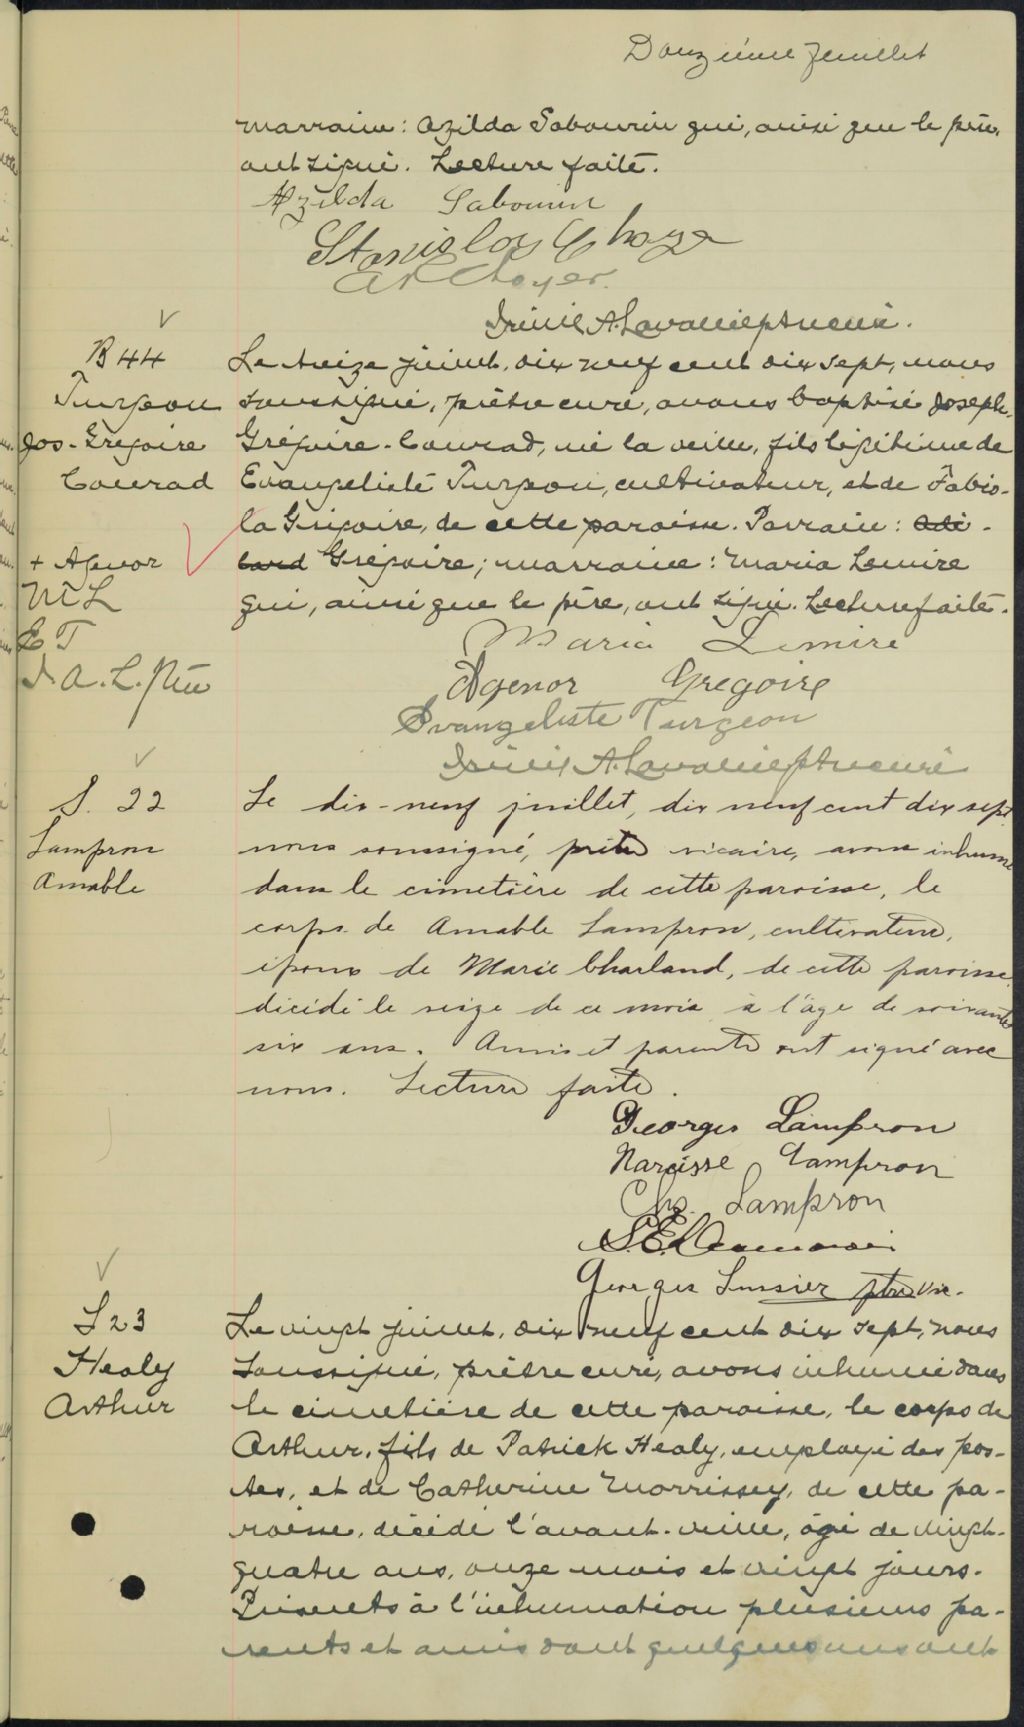 Douzième feuillet
marraine: Azilda Sabourin qui, ainsi que le père,
ont signé. Lecture faite.
Azilda Sabourin
Stanislas
A. Choyer.
A. Lavallée ptre curé.
B 44
Turgeon
Jos-Grégoire
Conrad
Le treize juillet, dix neuf cent dix sept, nous
soussigné, prêtre curé, avons baptisé Joseph-
Grégoire-Conrad, né la veille, fils légitime de
Evangeliste Turgeon, cultivateur, et de Fabio-
la Grégoire, de cette paroisse. Parrain: Adé-
lard Grégoire; marraine: Maria Lemire
qui, ainsi que le père, ont signé. Lecture faite.
+ Agenor
M L
E T
A. L. Ptre
Maria Lemire
Agenor Gregoire
Evangeliste Turgeon
A. Lavallée ptre curé
S. 22
Lampron
Amable
Le dix-neuf juillet, dix neuf cent dix sept
nous soussigné, prêtre vicaire, avons inhumé
dans le cimetière de cette paroisse, le
corps de Amable Lampron, cultivateur,
époux de Marie Charland, de cette paroisse,
décédé le seize de ce mois à l'âge de soixante
six ans. Amis et parents ont signé avec
nous. Lecture faite.
Georges Lampron
Narcisse Lampron
Chs. Lampron
S. E.
Georges Lussier ptre vic.
S 23
Healy
Arthur
Le vingt juillet, dix neuf cent dix sept, nous
soussigné, prêtre curé, avons inhumé dans
le cimetière de cette paroisse, le corps de
Arthur, fils de Patrick Healy, employé des pos-
tes, et de Catherine Morrissey, de cette pa-
roisse, décédé l'avant-veille, âgé de vingt-
quatre ans, onze mois et vingt jours.
Présents à l'inhumation plusieurs pa-
rents et amis dont quelques uns ont